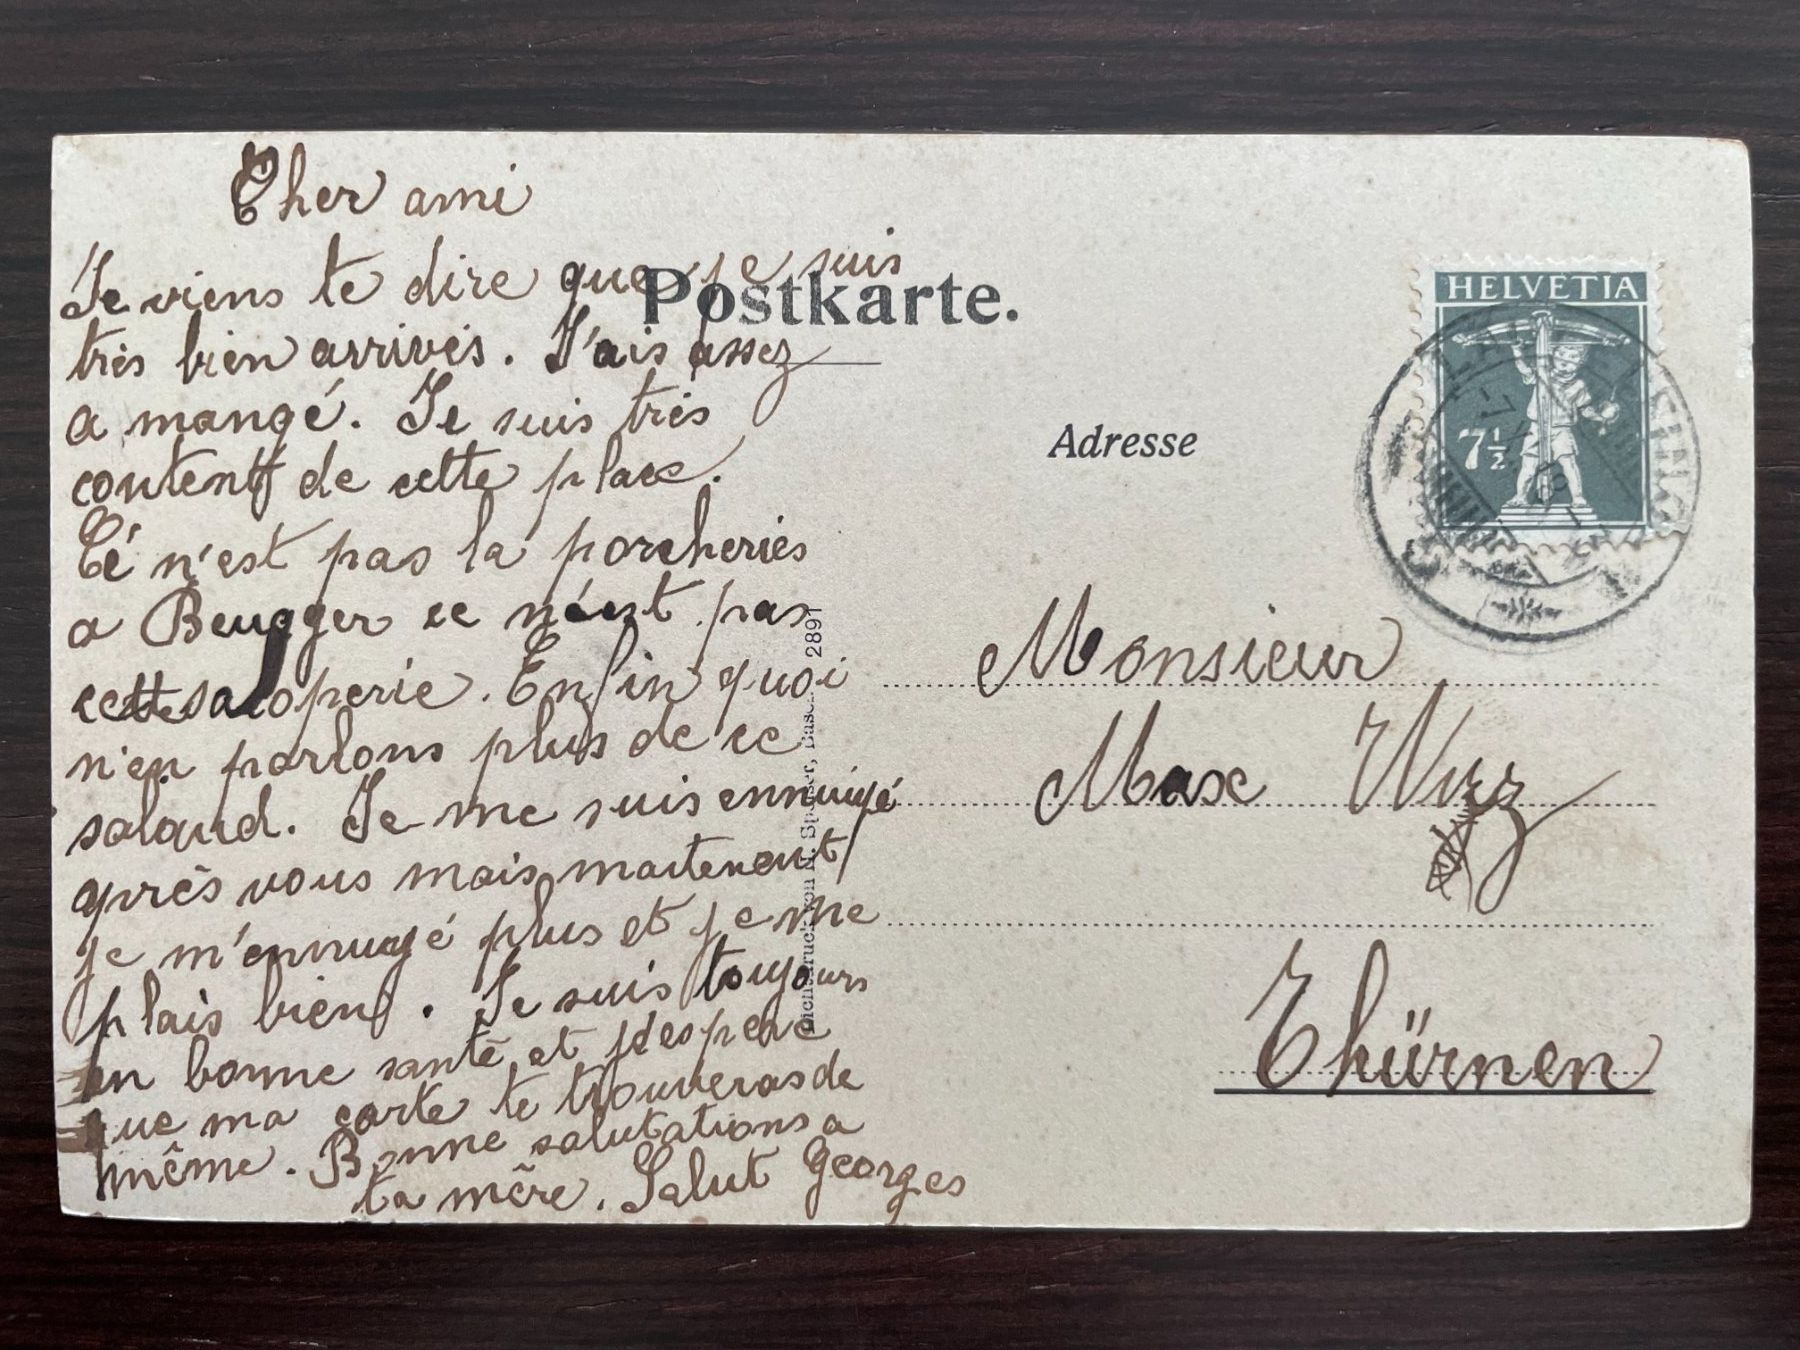 Cher ami
Je viens te dire que je suis
très bien arrivés. J'ais assez
a mangé. Je suis très
content de cette place.
Cé n'est pas la porcheries
a Beugger ce n'est pas
cette saloperie. Enfin quoi
n'en parlons plus de ce
salaud. Je me suis ennuiyé
après vous mais maitenent
je m'ennuyé plus et je me
plais bien. Je suis toujours
en bonne santé et j'espere
que ma carte te trouveras de
même. Bonne salutations a
ta mère. Salut Georges
Postkarte.
Adresse
HELVETIA
7½
Monsieur
Max Wirz
Thürnen
2891